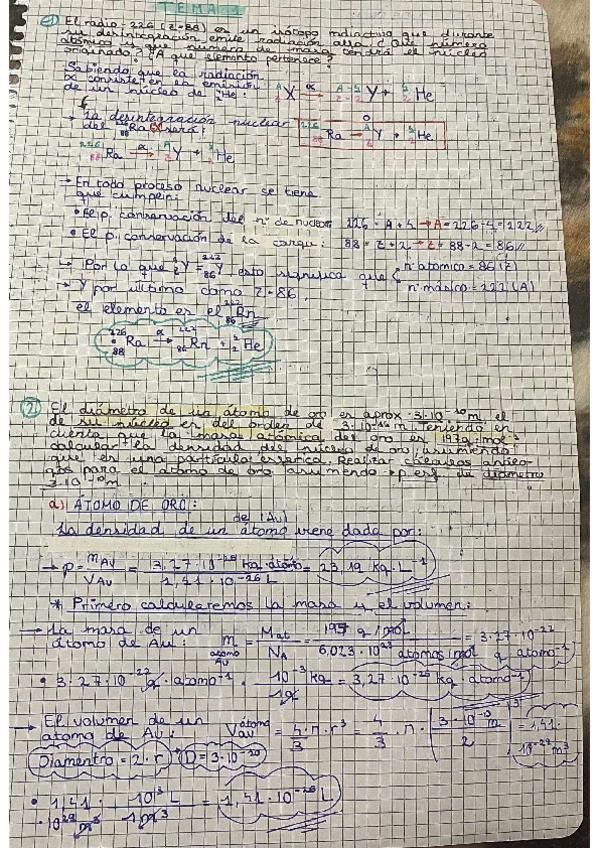 TEMA 1
1) El radio-226 (Z=88) es un isótopo radiactivo que durante
su desintegración emite radiación alfa. ¿Qué número
atómico y que número de masa tendrá el núcleo
originado? ¿A que elemento pertenece?
Sabiendo que la radiación
α consiste en la emisión
de un núcleo de He:
X → α Y + He
→ La desintegración nuclear
del Ra será:
226 88 Ra → A Z Y + 4 2 He
226 88 Ra → α A Z Y + 4 2 He
→ En todo proceso nuclear se tiene
que cumplir:
• El p. conservación del nº de nucleones 226 = A + 4 → A = 226-4 = 222
• El p. conservación de la carga: 88 = Z + 2 → Z = 88-2 = 86
→ Por lo que A Z Y = 222 86 Y esto significa que nº atómico = 86 (Z)
nº másico = 222 (A)
→ Y por último como Z=86,
el elemento es el 222 86 Rn
226 88 Ra → α 222 86 Rn + 4 2 He
2) El diámetro de un átomo de oro es aprox. 3·10⁻¹⁰ m, el
de su núcleo es del orden de 3·10 m. Teniendo en
cuenta que la masa atómica del oro es 197g·mol⁻¹
calcular la densidad del núcleo de oro, asumiendo
que es una partícula esférica. Realizar cálculos análo-
gos para el átomo de oro asumiendo p. esf. de diámetro
3·10⁻¹⁰ m
a) ÁTOMO DE ORO:
La densidad de un átomo de (Au) viene dada por:
→ ρ = mAu / VAu = 3,27·10⁻²⁵ kg·átomo / 1,41·10⁻²⁶ L = 23,19 kg·L⁻¹
* Primero calcularemos la masa y el volumen:
→ La masa de un
átomo de Au: m átomo Au = Mat / NA = 197 g/mol / 6,023·10²³ átomos/mol = 3,27·10⁻²² g átomo⁻¹
• 3,27·10⁻²² g·átomo⁻¹ · 10⁻³ kg / 1g = 3,27·10⁻²⁵ kg·átomo⁻¹
→ El volumen de un
átomo de Au: V átomo Au = 4/3 · π · r³ = 4/3 · π · = 1,41·
10⁻²⁹ m³
Diámentro = 2·r D = 3·10⁻¹⁰
• 1,41·
10 m³ · 10³ L / 1 m³ = 1,41·10⁻²⁶ L